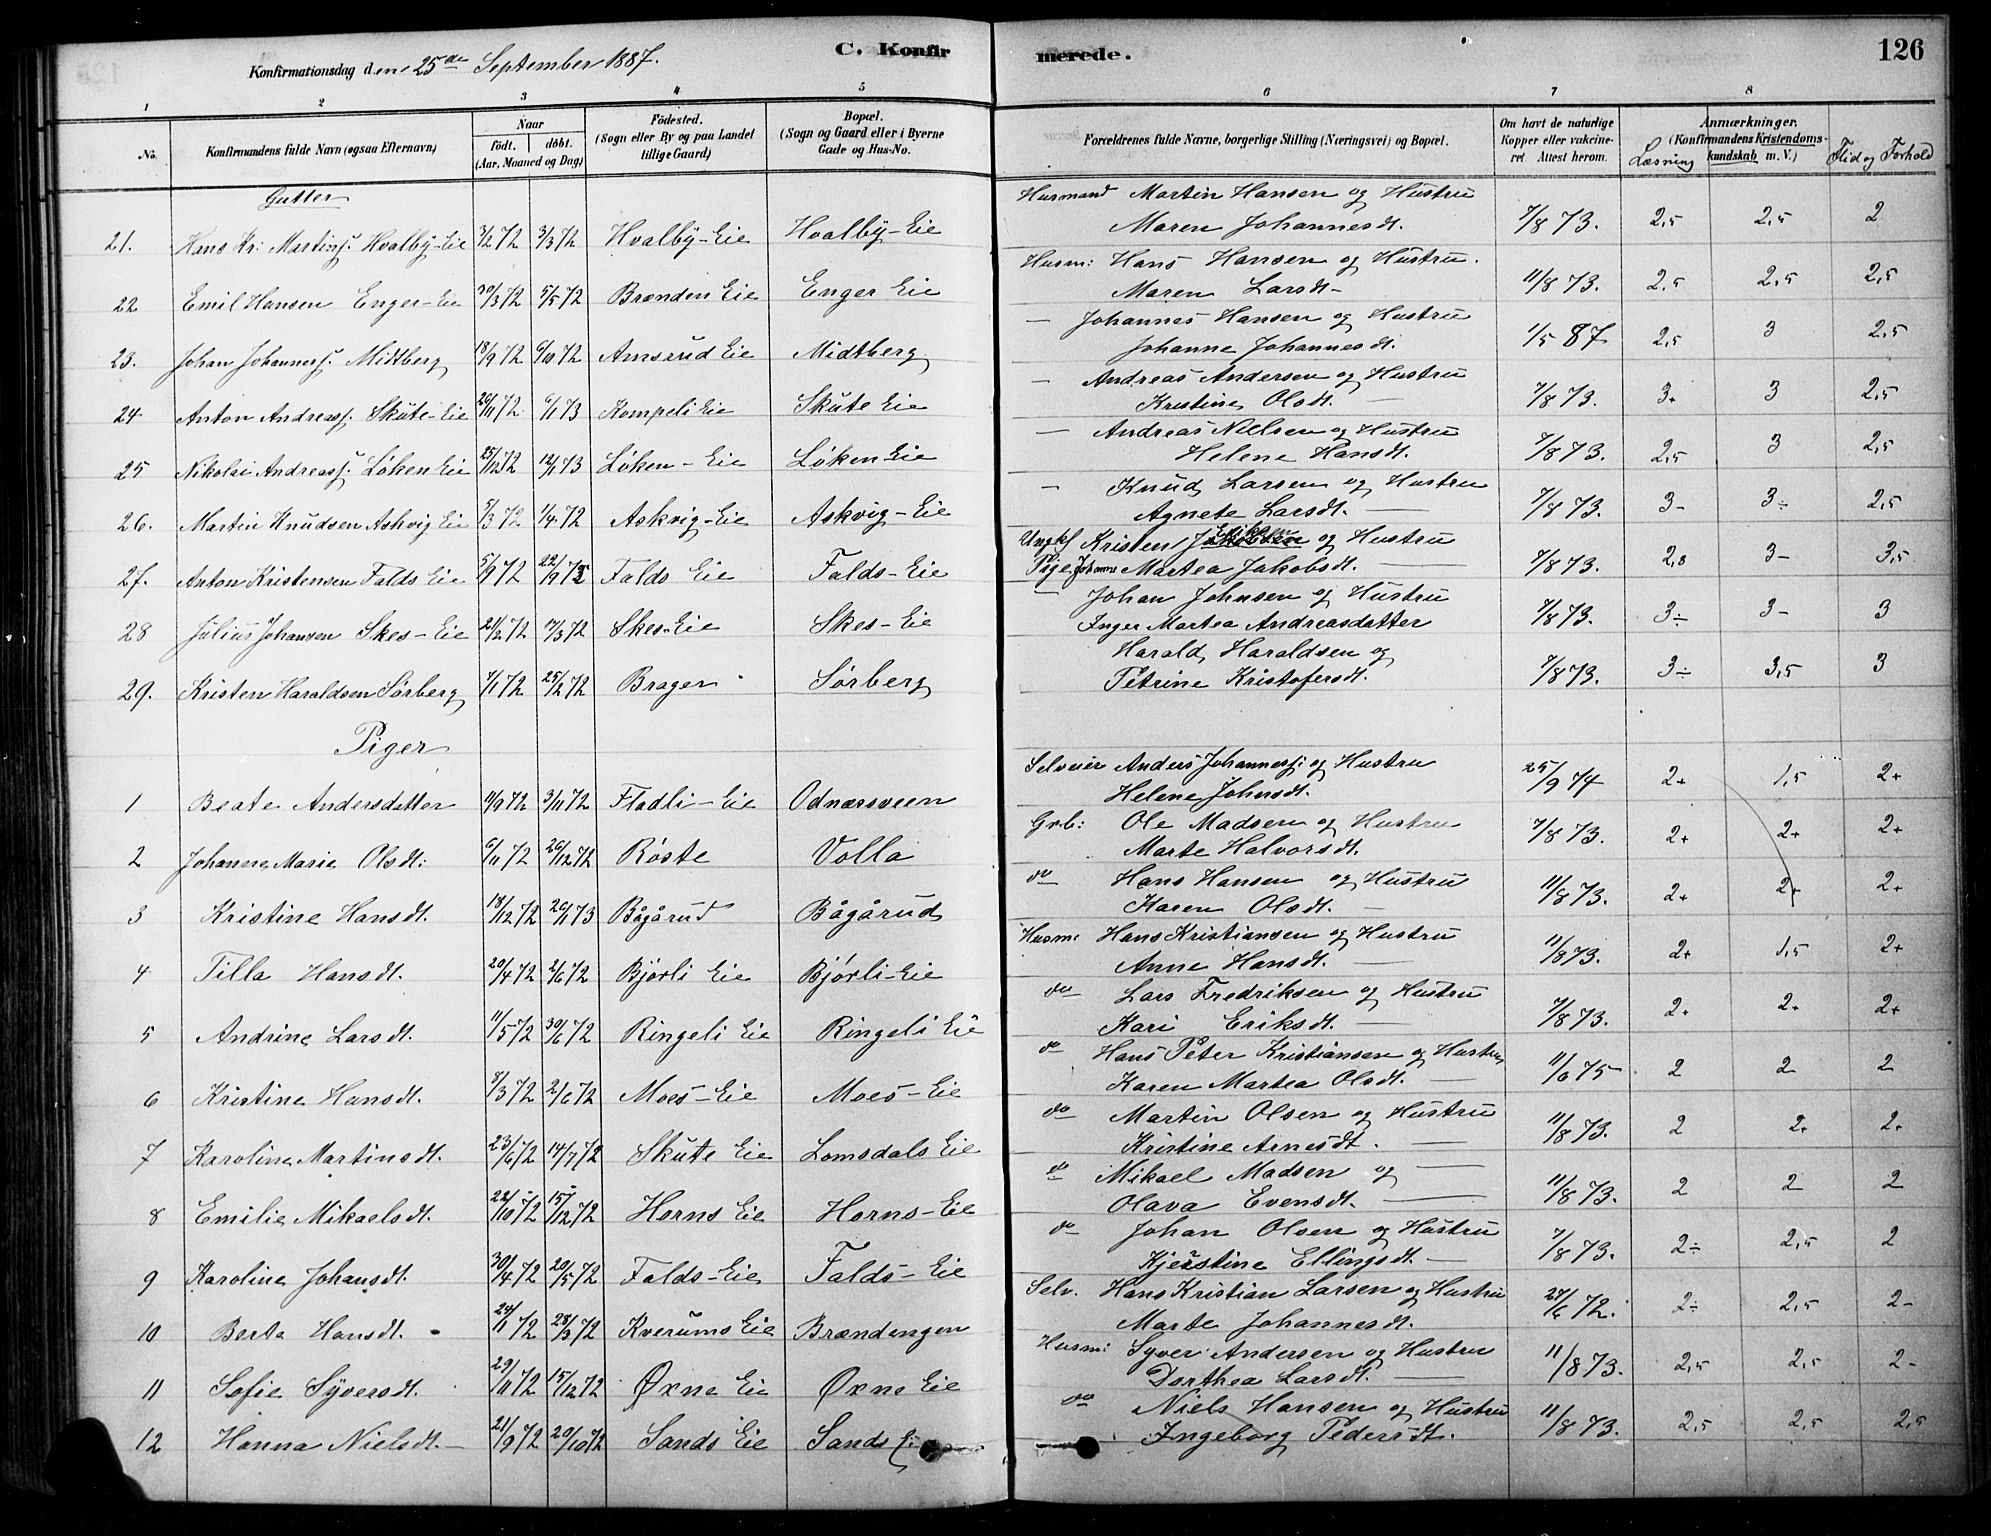 C. Konfirmerede.
126
Konfirmationsdag den 25de September 1887.
1 2 3 4 5 6 7 8
No. Konfirmandens fulde Navn (ogsaa Efternavn) Naar født. døbt. (Aar, Maaned og Dag) Fødested. (Sogn eller By og paa Landet tillige Gaard) Bopæl. (Sogn og Gaard eller i Byerne Gade og Hus-No. Forældrenes fulde Navne, borgerlige Stilling (Næringsvei) og Bopæl. Om havt de naturlige Kopper eller vakcineret. Attest herom. Anmærkninger. (Konfirmandens Kristendomskundskab m. V.) Læsning Flid og Forhold
Gutter
21. Hans Kr: Martinsf. Hvalby-Eie 3/2 72 3/3 72 Hvalby-Eie Hvalby-Eie Husmand Martin Hansen og Hustru Maren Johannesdt. 7/8 73. 2,5 2,5 2
22 Emil Hansen Enger-Eie 30/3 72 5/5 72 Brænden Eie Enger Eie Husm: Hans Hansen og Hustru. Maren Larsdt- 11/8 73. 2,5 2,5 2,5
23. Johan Johannesf. Midtberg 18/9 72 6/10 72 Amsrud Eie Midtberg — Johannes Hansen og Hustru Johanne Johannesdt. 1/5 87 2,5 3 2,5
24. Anton Andreasf. Skute Eie 26/11 72 6/1 73 Kompeli Eie Skute Eie — Andreas Andersen og Hustru Kristine Olsdt. — 7/8 73. 3+ 3 2,5
25 Nikolai Andreasf. Løken Eie 25/12 72 12/1 73 Løken-Eie Løken Eie — Andreas Nielsen og Hustru Helene Hansdt. 7/8 73. 2,5 3 2,5
26. Martin Knudsen Askvig Eie 5/3 72 1/4 72 Askvig-Eie Askvig-Eie — Knud Larsen og Hustru Agnete Larsdt. — 7/8 73. 3- 3÷ 2,5
27. Anton Kristensen Falds Eie 5/9 72 22/9 72 Falds Eie Falds-Eie Ungkf Kristen og Hustru Pige Johanne Martea Jakobsdt. — 7/8 73. 2,8 3- 3,5
28 Julius Johansen Skes-Eie 21/2 72 17/3 72 Skes-Eie Skes-Eie — Johan Johnsen og Hustru Inger Martea Andreasdatter 7/8 73. 3÷ 3- 3
29. Kristen Haraldsen Sørberg 7/1 72 25/2 72 Brager Sørberg Harald Haraldsen og Petrine Kristofersdt. 7/8 73. 3÷ 3,5 3
Piger
1 Beate Andersdatter 11/9 72 3/11 72 Fladli-Eie Odnæsveen Selveier Anders Johannesf. og Hustru Helene Johnsdt. 25/9 74 2+ 1,5 2+
2 Johanne Marie Olsdt: 6/11 72 26/12 72 Røste Volla Grb: Ole Madsen og Hustru Marte Halvorsdt. 7/8 73. 2+ 2+ 2+
3 Kristine Hansdt. 18/12 72 26/1 73 Bågårud Bågårud do Hans Hansen og Hustru Karen Olsdt. — 11/8 73. 2+ 2+ 2+
4 Tilla Hansdt. 20/4 72 2/6 72 Bjørli Eie Bjørli-Eie Husm: Hans Kristiansen og Hustru Anne Hansdt. — 11/8 73. 2+ 1,5 2+
5 Andrine Larsdt. 11/5 72 30/6 72 Ringeli Eie Ringeli Eie do Lars Fredriksen og Hustru Kari Eriksdt. — 7/8 73. 2+ 2+ 2+
6 Kristine Hansdt. 8/3 72 2/6 72 Moes-Eie Moes-Eie do Hans Peter Kristiansen og Hustru Karen Martea Olsdt. — 11/6 75 2 2 2
7 Karoline Martinsdt. 23/6 72 14/7 72 Skute Eie Lomsdals Eie do Martin Olsen og Hustru Kristine Arnesdt. — 11/8 73. 2 2+ 2+
8 Emilie Mikaelsdt. 22/10 72 15/12 72 Horns Eie Horns-Eie do Mikael Madsen og — Olava Evensdt. — 11/8 73. 2 2 2
9 Karoline Johansdt. 30/4 72 20/5 72 Falds-Eie Falds-Eie do Johan Olsen og Hustru Kjerstine Ellingsdt. — 7/8 73. 2÷ 2,5 2
10 Berte Hansdt. 24/1 72 28/3 72 Kverums Eie Brændengen Selv. Hans Kristian Larsen og Hustru Marte Johannesdt. 27/6 72. 2÷ 2,5 2-
11 Sofie Syversdt. 29/11 72 15/12 72 Øxne Eie Øxne Eie Husm: Syver Andersen og Hustru Dorthea Larsdt. — 11/8 73. 2,5 2,5 2-
12 Hanna Nielsdt. 21/9 72 20/10 72 Sands Eie Sands do Niels Hansen og Hustru Ingeborg Pedersdt. 11/8 73. 2,5 2,5 2,5